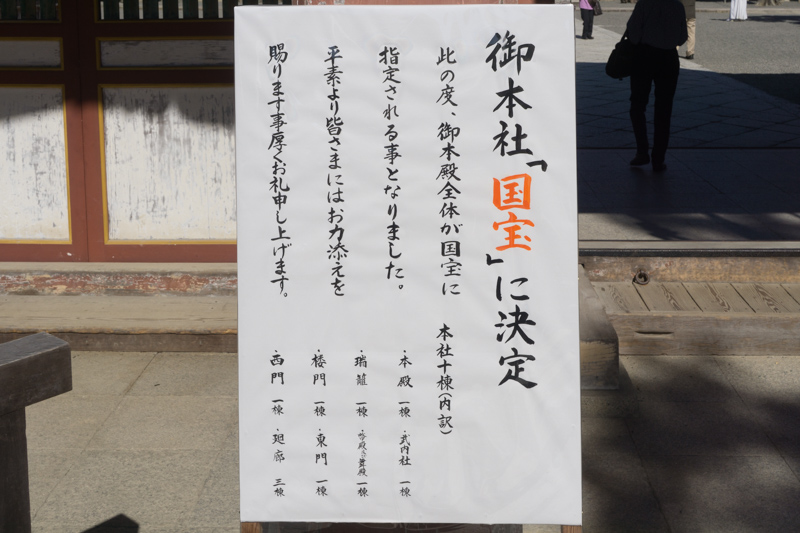 御本社「国宝」に決定
此の度、御本殿全体が国宝に
指定される事となりました。
平素より皆さまにはお力添えを
賜ります事厚くお礼申し上げます。
本社十棟(内訳)
・本殿 一棟・武内社 一棟
・瑞籬 一棟・幣殿及び舞殿 一棟
・楼門 一棟・東門 一棟
・西門 一棟・廻廊 三棟